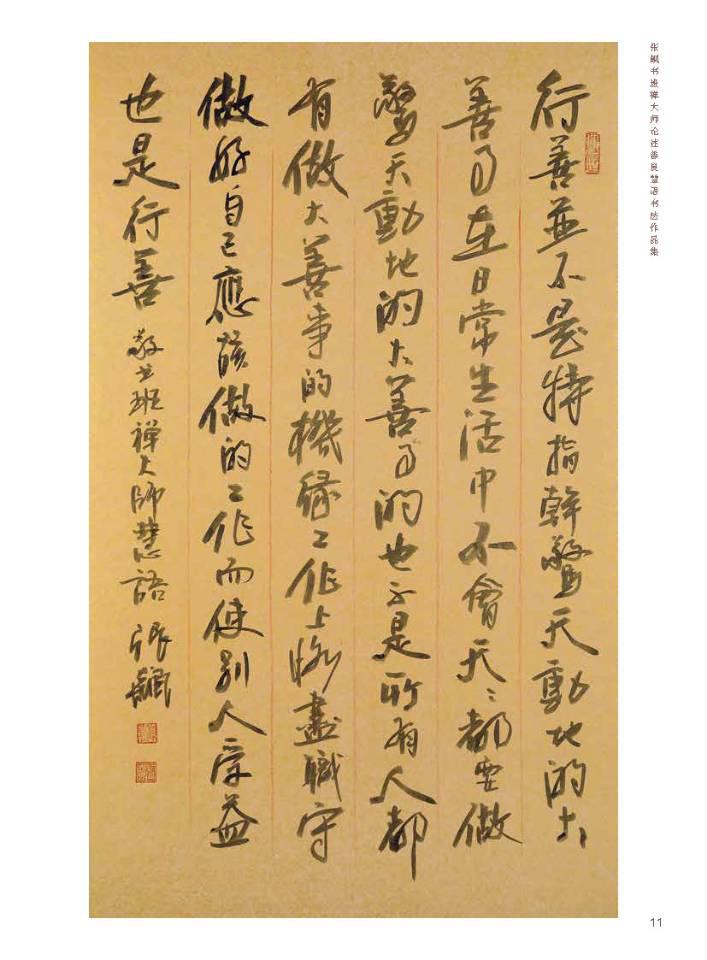 行善並不是特指幹驚天動地的大
善事在日常生活中不會天〻都要做
驚天動地的大善事的也不是所有人都
有做大善事的機緣工作上恪盡職守
做好自己應該做的工作而使別人受益
也是行善 敬书班禅大師慧語 張飆
张飙书班禅大师论述善良慧语书法作品集
11